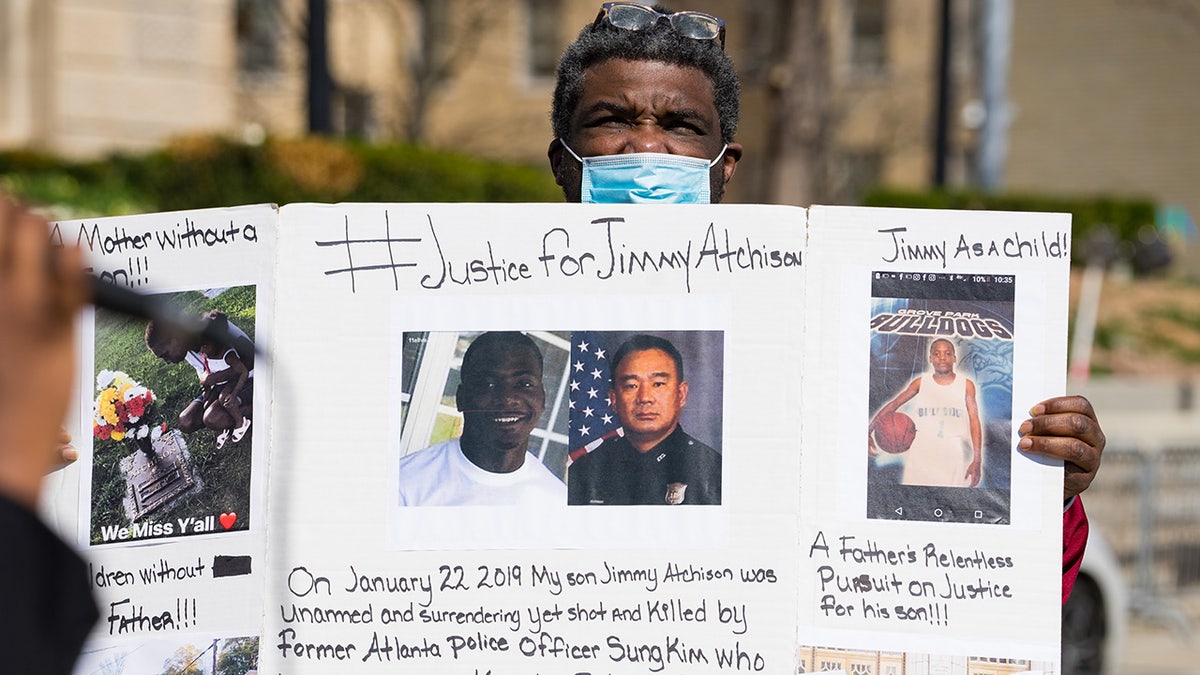 A Mother without a
Son!!!
We Miss Y'all ❤️
ldren without
Father!!!
#Justice for Jimmy Atchison
11alive
On January 22 2019 My son Jimmy Atchison was
unarmed and surrendering yet shot and killed by
Former Atlanta Police Officer Sung Kim who
Jimmy As a Child!
10% 10:35
GROVE PARK
BULLDOGS
A Father's Relentless
Pursuit on Justice
for his son!!!